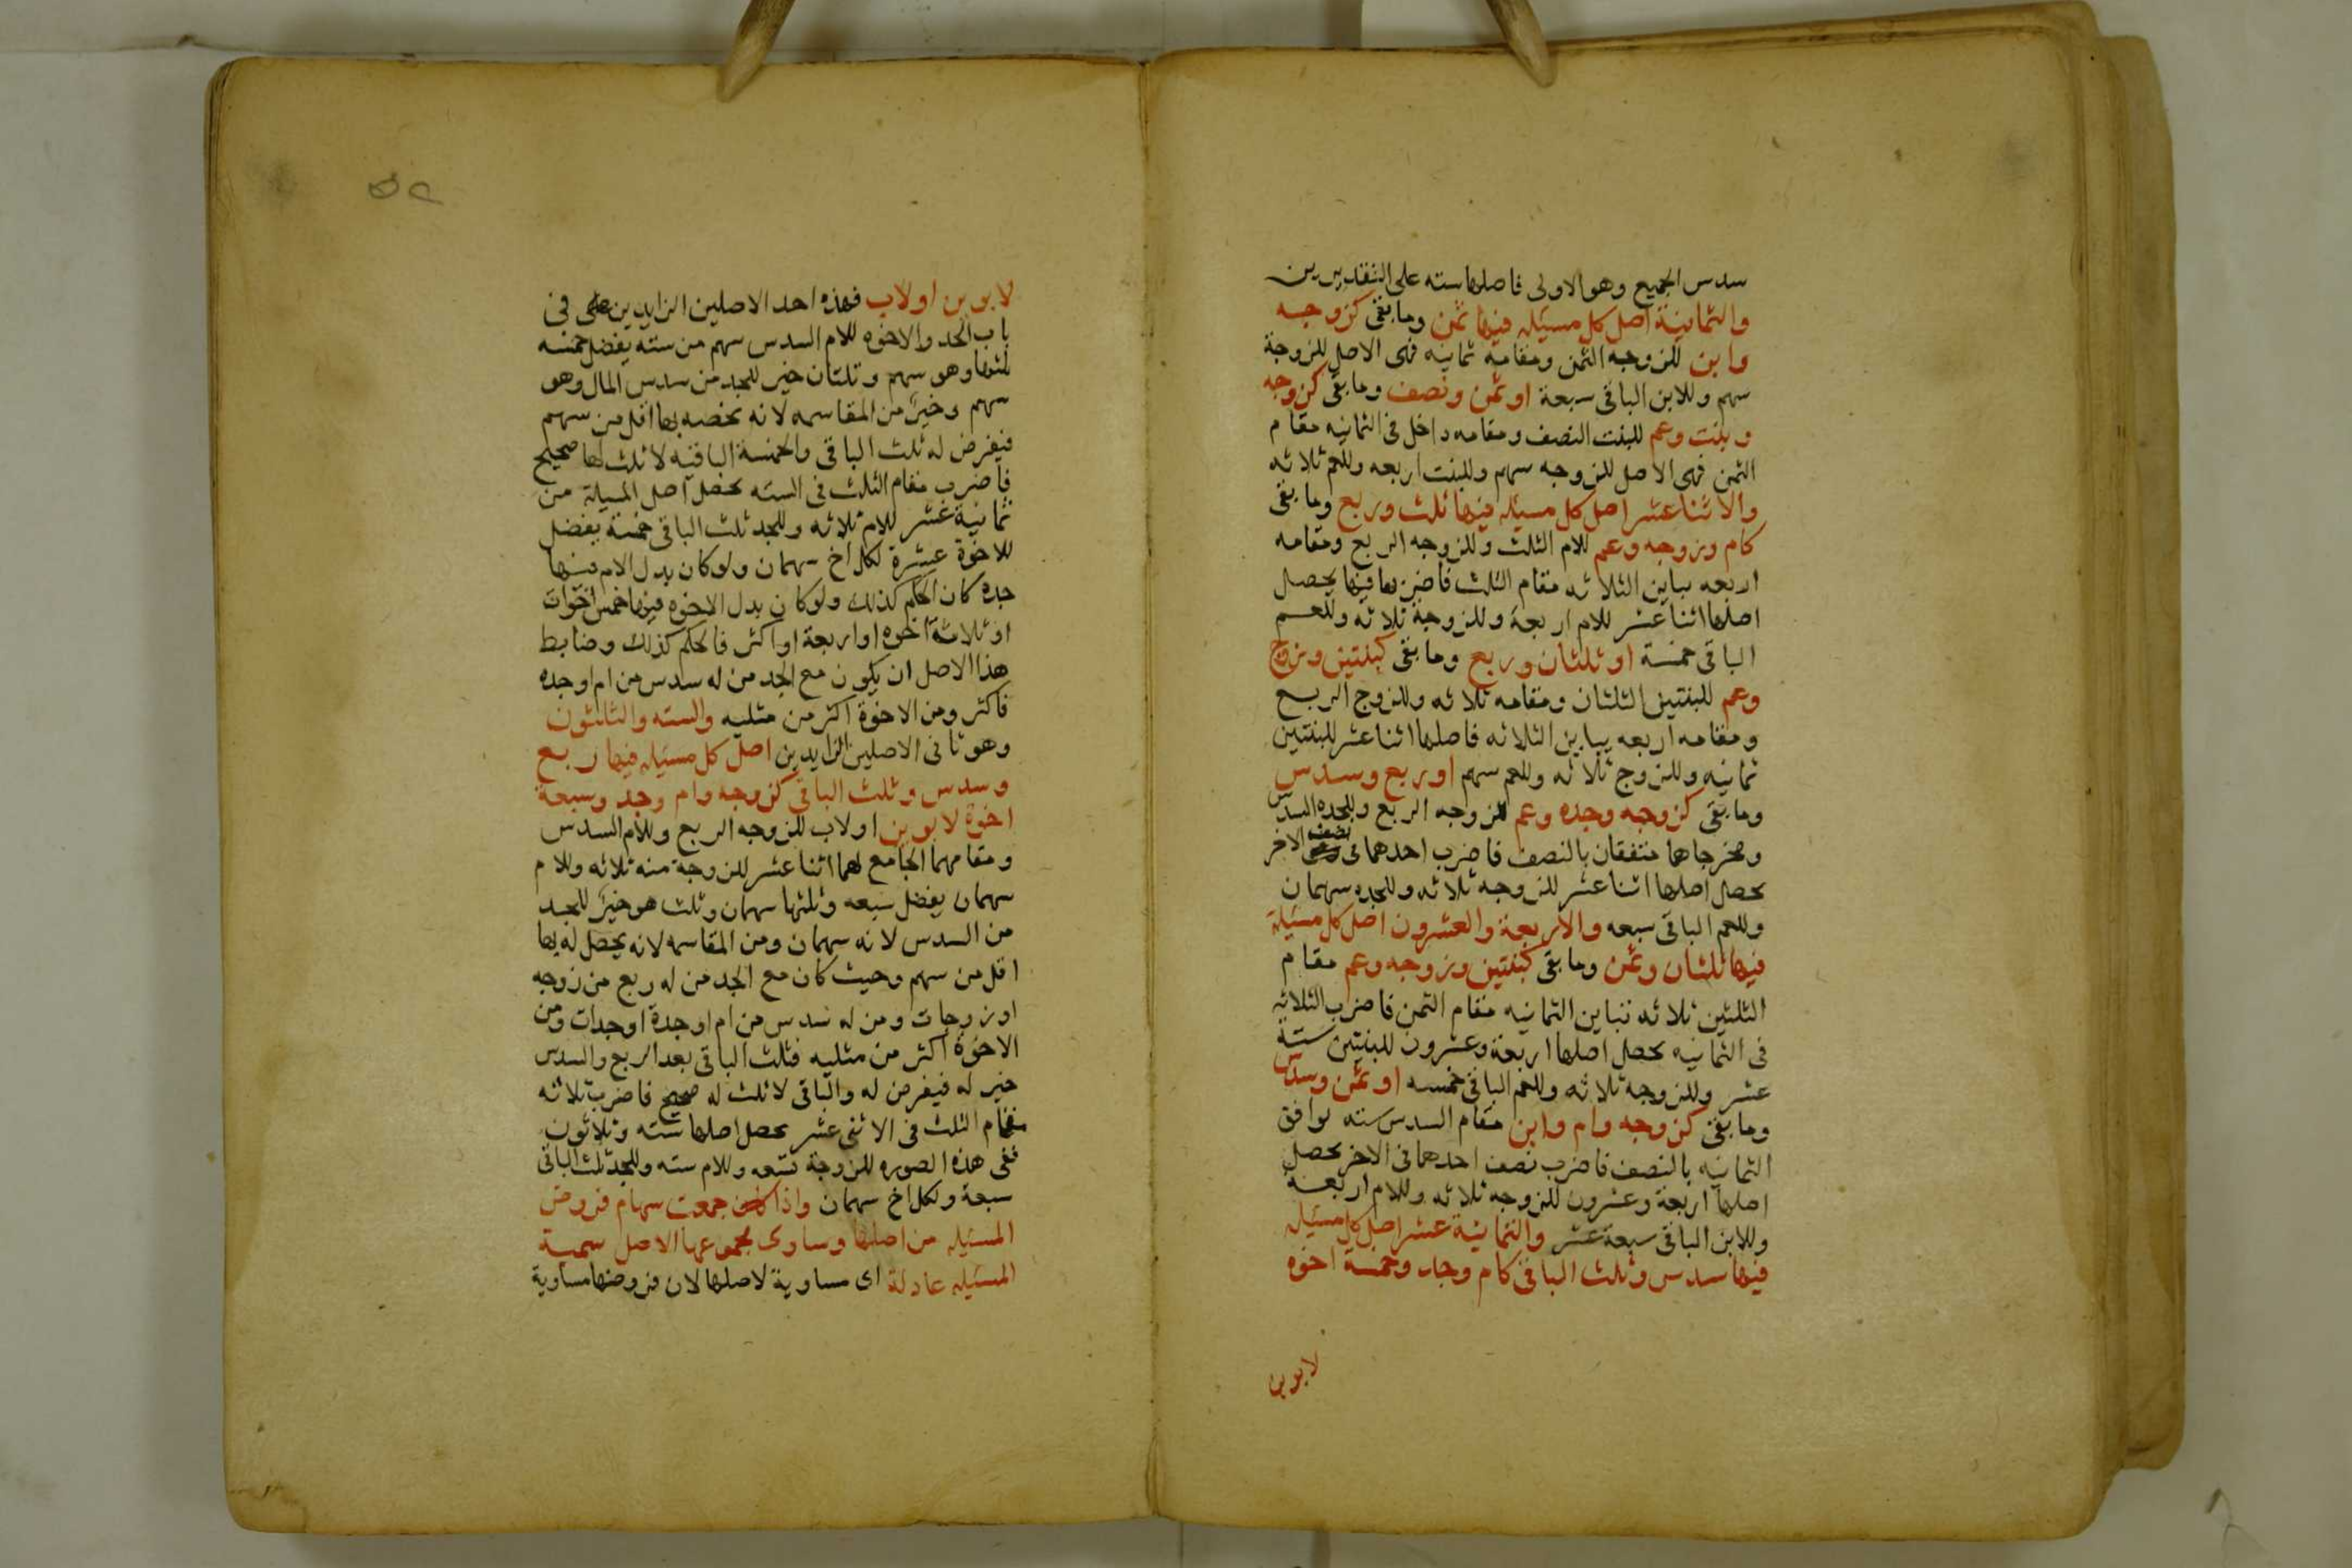 سدس الجميع وهو الاولى فاصلها سته على التقديرين
والثمانية اصل كل مسيله فيها ثمن وما بقى كزوجه
وابن للزوجه الثمن ومقامه ثمانيه فهى الاصل للزوجة
سهم وللابن الباقى سبعة او ثمن ونصف وما بقى كزوجه
وبنت وعم للبنت النصف ومقامه داخل فى الثمانيه مقام
الثمن فهى الاصل للزوجه سهم وللبنت اربعه وللعم ثلاثه
والاثنا عشر اصل كل مسيله فيها ثلث وربع وما بقى
كام وزوجه وعم للام الثلث وللزوجه الربع ومقامه
اربعه يباين الثلاثه مقام الثلث فاضربها فيها يحصل
اصلها اثنا عشر للام اربعة وللزوجة ثلاثه وللعم
الباقى خمسة او ثلثان وربع وما بقى كبنتين وزوج
وعم للبنتين الثلثان ومقامه ثلاثه وللزوج الربع
ومقامه اربعه يباين الثلاثه فاصلها اثنا عشر للبنتين
ثمانيه وللزوج ثلاثه وللعم سهم او ربع وسدس
وما بقى كزوجه وجده وعم للزوجه الربع وللجده السدس
ومخرجاهما متفقان بالنصف فاضرب احدهما فى نصف الاخر
يحصل اصلها اثنا عشر للزوجه ثلاثه وللجده سهمان
وللعم الباقى سبعه والاربعة والعشرون اصل كل مسيلة
فيها ثلثان وثمن وما بقى كبنتين وزوجه وعم مقام
الثلثين ثلاثه تباين الثمانيه مقام الثمن فاضرب الثلاثه
فى الثمانيه يحصل اصلها اربعة وعشرون للبنتين ستة
عشر وللزوجه ثلاثه وللعم الباقى خمسه او ثمن وسدس
وما بقى كزوجه وام وابن مقام السدس سته توافق
الثمانيه بالنصف فاضرب نصف احدهما فى الاخر يحصل
اصلها اربعة وعشرون للزوجه ثلاثه وللام اربعة
وللابن الباقى سبعة عشر والثمانية عشر اصل كل مسيله
فيها سدس وثلث الباقى كام وجد وخمسة اخوه
لابوين
٥٢
لابوين اولاب فهذه احد الاصلين الزايدين فى
باب الجد والاخوه للام السدس سهم من سته يفضل خمسه
ثلثها وهو سهم وثلثان خير للجد من سدس المال وهو
سهم وخير من المقاسمه لانه يخصه بها اقل من سهم
فيفرض له ثلث الباقى والخمسة الباقيه لا ثلث لها صحيح
فاضرب مقام الثلث فى السته يحصل اصل المسيلة من
ثمانية عشر للام ثلاثه وللجد ثلث الباقى خمسة يفضل
للاخوة عشرة لكل اخ سهمان ولو كان بدل الام فيها
جده كان الحكم كذلك ولو كان بدل الاخوه فيها خمس اخوات
او ثلاثة اخوه او اربعة او اكثر فالحكم كذلك وضابط
هذا الاصل ان يكون مع الجد من له سدس من ام او جده
فاكثر ومن الاخوة اكثر من مثليه والسته والثلثون
وهو ثانى الاصلين الزايدين اصل كل مسيله فيها ربع
وسدس وثلث الباقى كزوجه وام وجد وسبعة
اخوة لابوين اولاب للزوجه الربع وللام السدس
ومقامهما الجامع لهما اثنا عشر للزوجة منه ثلاثه وللام
سهمان يفضل سبعه وثلثها سهمان وثلث هو خير للجد
من السدس لانه سهمان ومن المقاسمه لانه يحصل له بها
اقل من سهم وحيث كان مع الجد من له ربع من زوجه
او زوجات ومن له سدس من ام او جدة او جدات ومن
الاخوة اكثر من مثليه فثلث الباقى بعد الربع والسدس
خير له فيفرض له والباقى لا ثلث له صحيح فاضرب ثلاثه
مقام الثلث فى الاثنى عشر يحصل اصلها سته وثلاثون
ففى هذه الصوره للزوجة تسعه وللام سته وللجد ثلث الباقى
سبعة ولكل اخ سهمان واذا جمعت سهام فروض
المسيله من اصلها وساوى مجموعها الاصل سمية
المسيله عادلة اى مساوية لاصلها لان فروضها مساوية